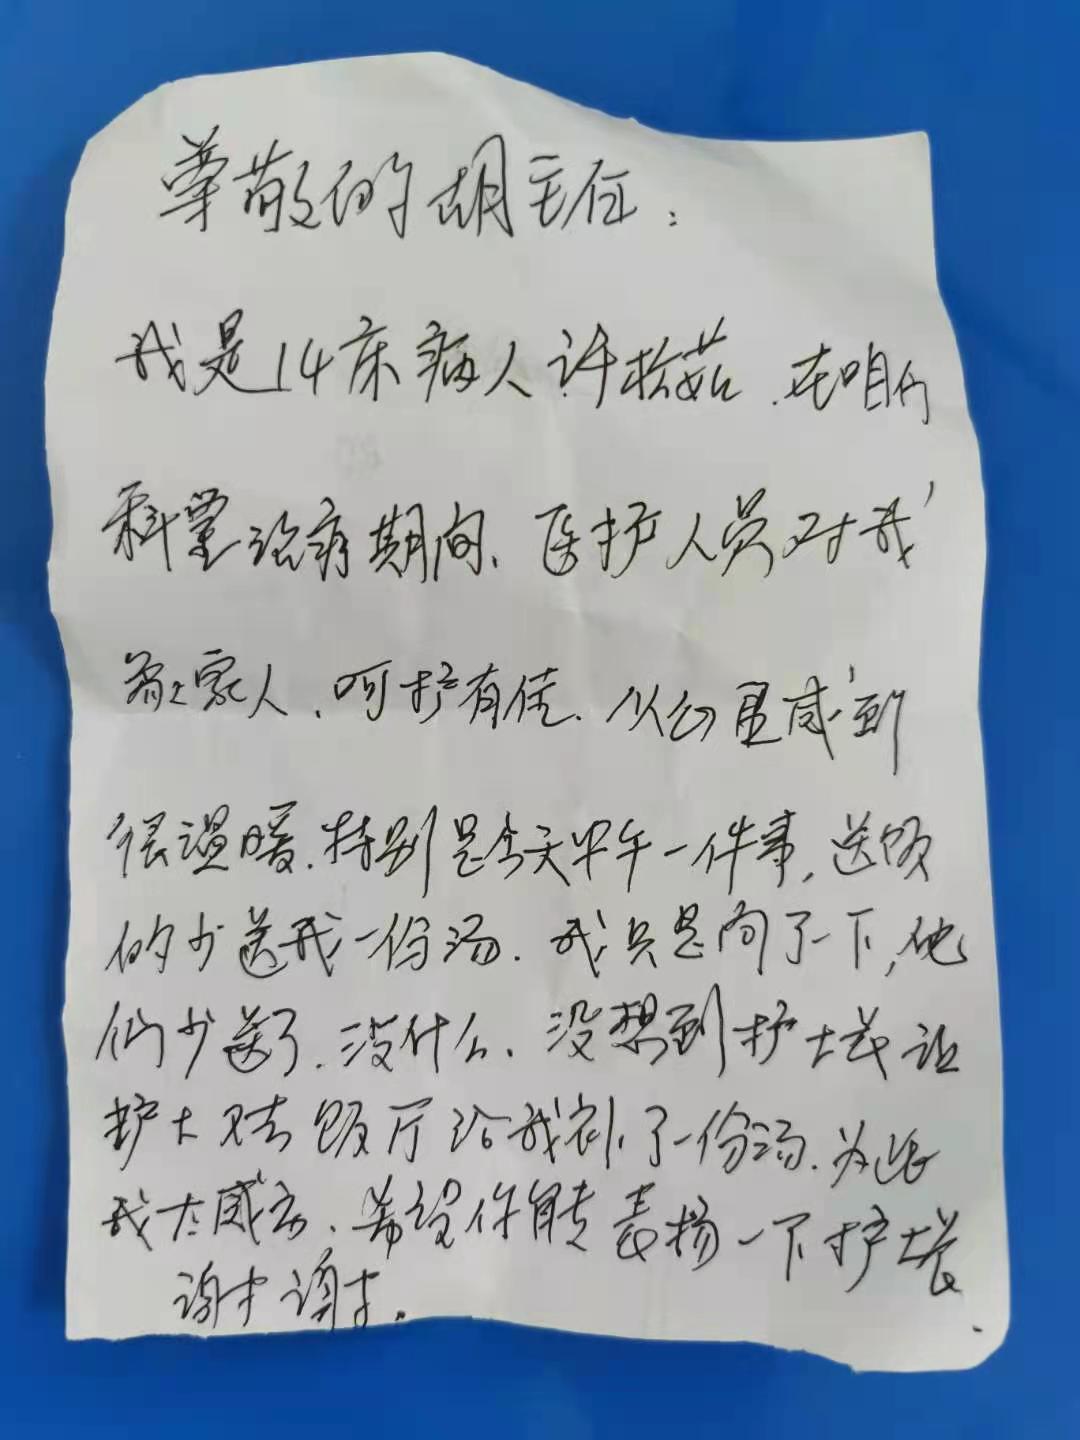 尊敬的胡主任：
我是14床病人许松茹.在咱们
科室治病期间、医护人员对我
亲如家人、呵护有佳.从心里感到
很温暖.特别是今天中午一件事,送饭
的少送我一份汤.我只是问了一下,他
们少送了.没什么、没想到护士长让
护士又去饭厅给我补了一份汤.为此
我太感动、希望你能表扬一下护士长
谢谢.